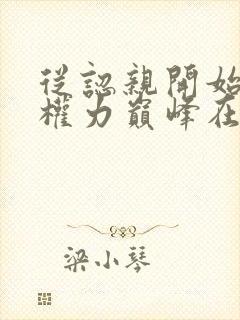 從認親開始
權力巔峰在
梁小琴